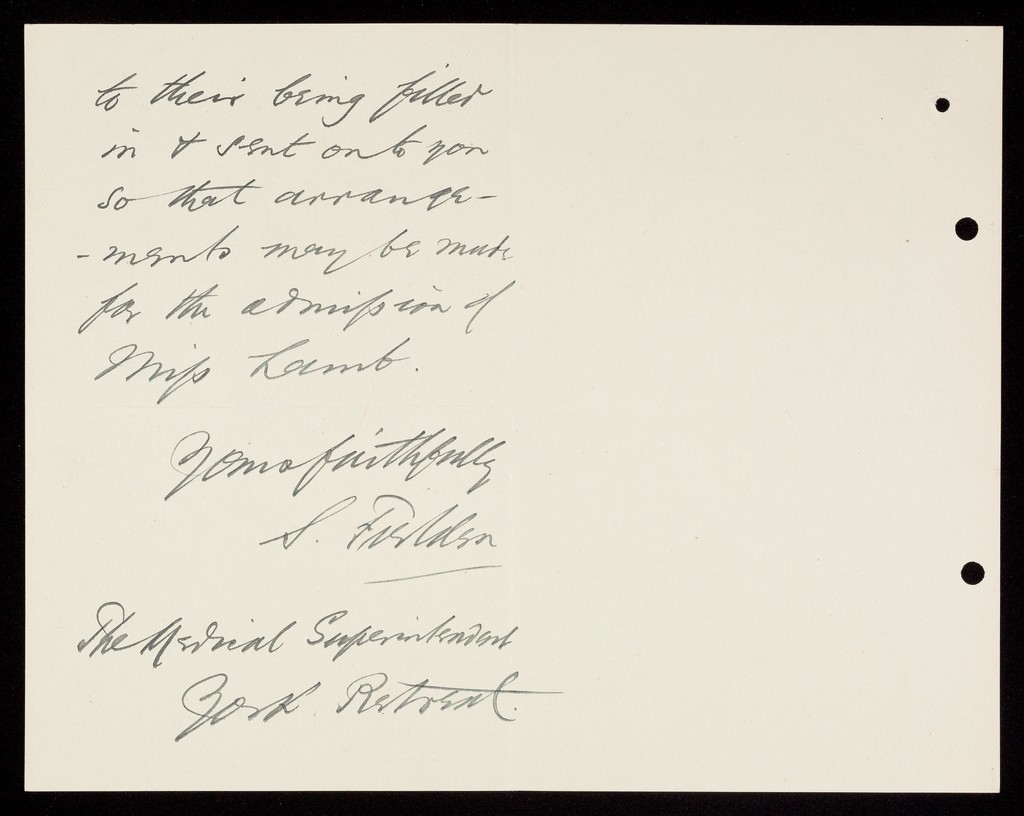 to their being filled
in & sent on to you
so that arrange-
-ments may be made
for the admission of
Miss Lamb.
Yours faithfully
S. Fielden
The Medical Superintendent
York Retreat.